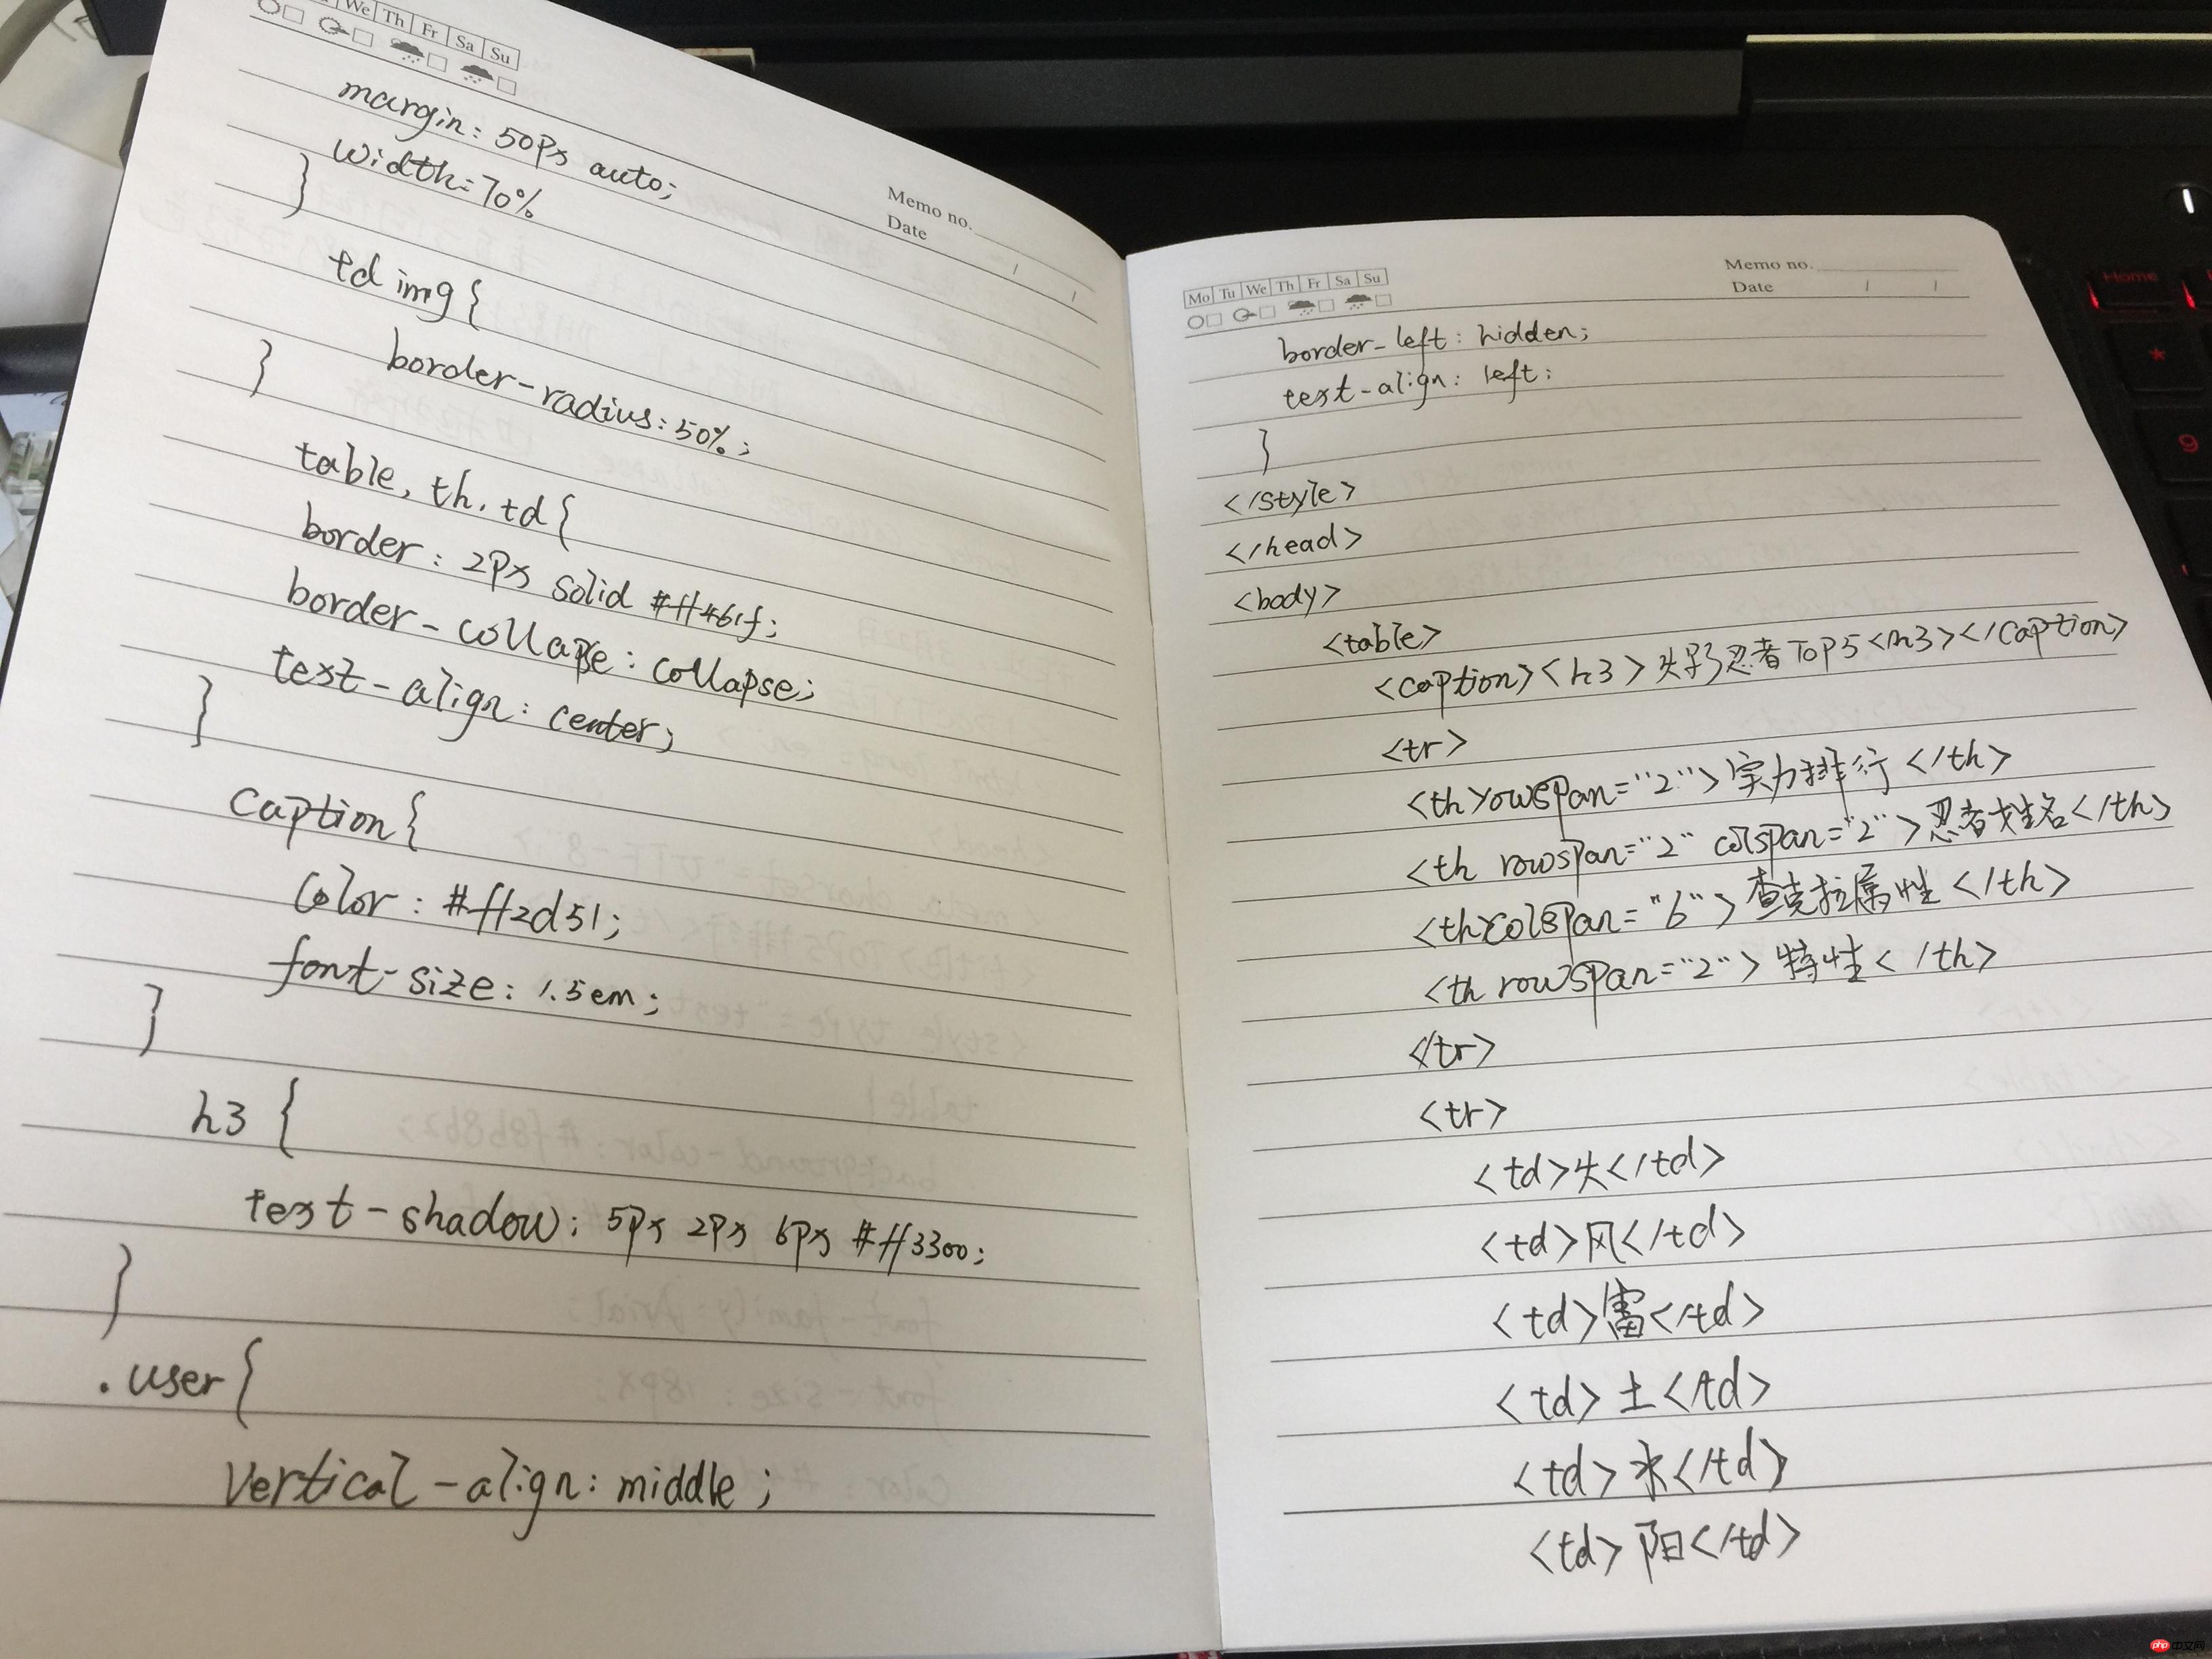 We Th Fr Sa Su
margin: 50px auto;
width: 70%
}
Memo no.
Date
td img{
border-radius: 50%;
}
table, th, td{
border: 2px solid #ff461f;
border-collapse: collapse;
text-align: center;
}
caption{
color: #ff2d51;
font-size: 1.5em;
}
h3 {
text-shadow: 5px 2px 6px #ff3300;
}
.user{
vertical-align: middle;
Mo Tu We Th Fr Sa Su
Memo no.
Date
border-left: hidden;
text-align: left;
}
</style>
</head>
<body>
<table>
<caption><h3>火影忍者TOP5</h3></caption>
<tr>
<th rowspan="2">实力排行</th>
<th rowspan="2" colspan="2">忍者姓名</th>
<th colspan="6">查克拉属性</th>
<th rowspan="2">特性</th>
</tr>
<tr>
<td>火</td>
<td>风</td>
<td>雷</td>
<td>土</td>
<td>水</td>
<td>阳</td>
Home
*
9
php 中文网